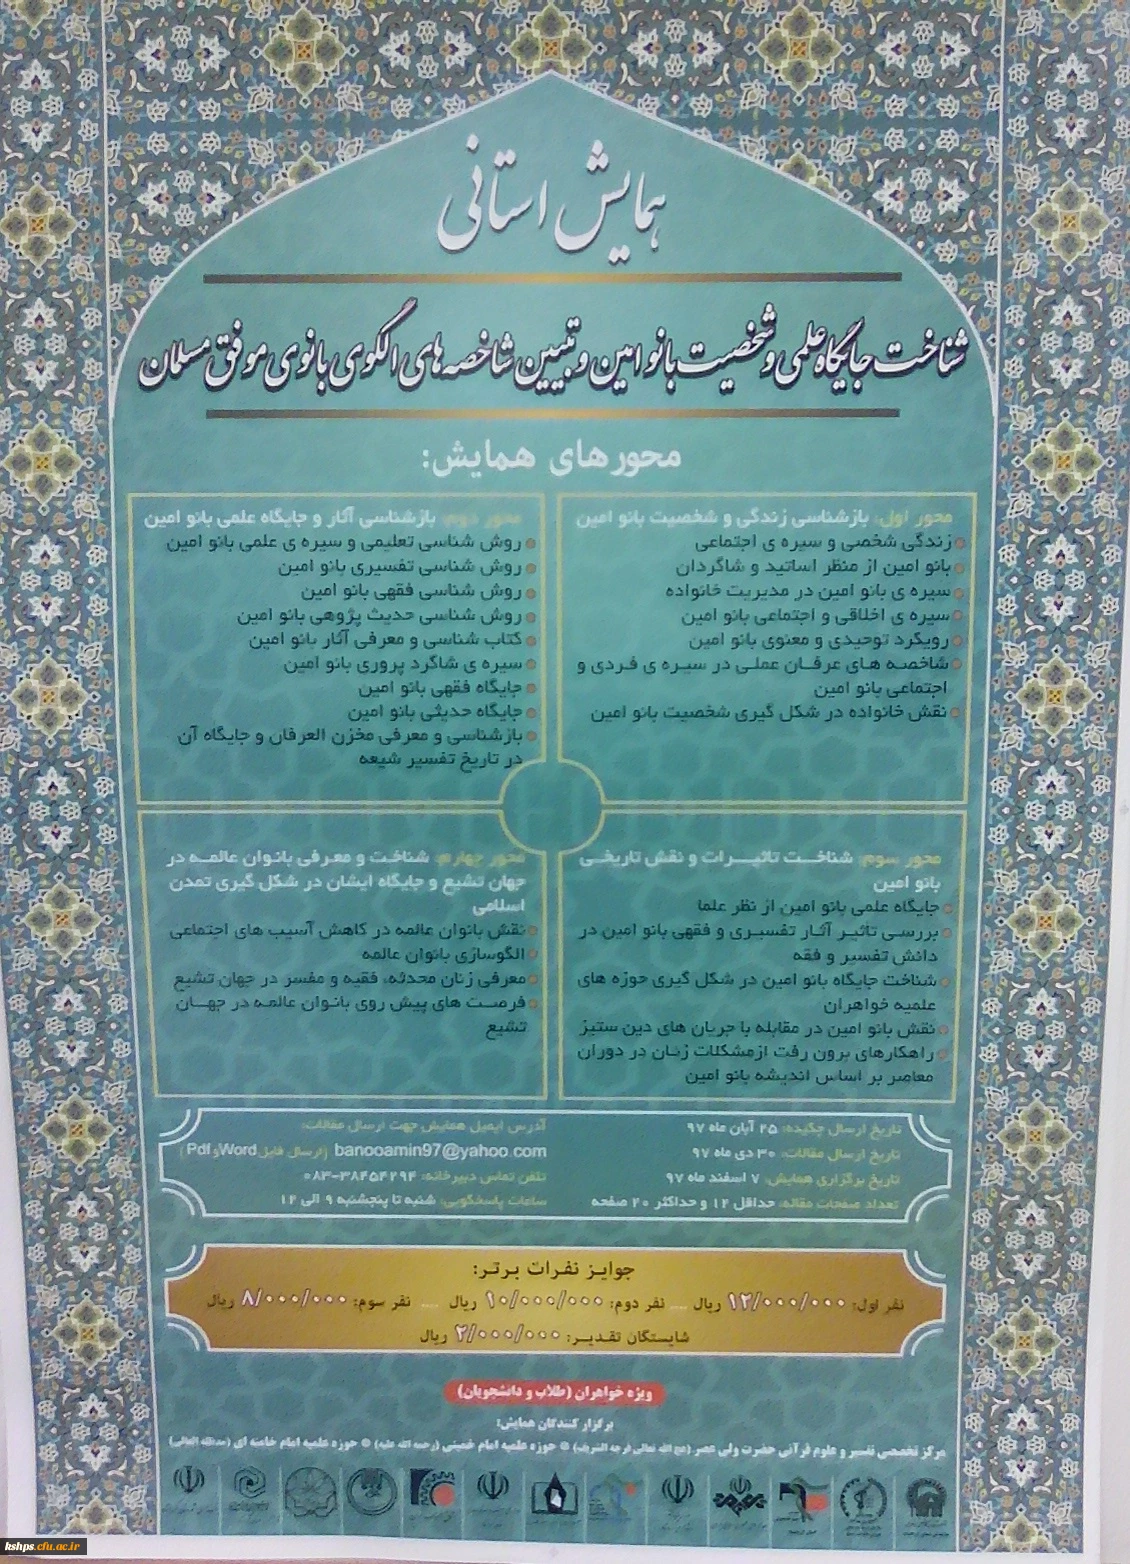 همایش استانی
شناخت جایگاه علمی و شخصیت بانو امین و تبیین شاخصه های الگوی بانوی موفق مسلمان
محورهای همایش:
محور اول: بازشناسی زندگی و شخصیت بانو امین
زندگی شخصی و سیره ی اجتماعی
بانو امین از منظر اساتید و شاگردان
سیره ی بانو امین در مدیریت خانواده
سیره ی اخلاقی و اجتماعی بانو امین
رویکرد توحیدی و معنوی بانو امین
شاخصه های عرفان عملی در سیره ی فردی و
اجتماعی بانو امین
نقش خانواده در شکل گیری شخصیت بانو امین
محور دوم: بازشناسی آثار و جایگاه علمی بانو امین
روش شناسی تعلیمی و سیره ی علمی بانو امین
روش شناسی تفسیری بانو امین
روش شناسی فقهی بانو امین
روش شناسی حدیث پژوهی بانو امین
کتاب شناسی و معرفی آثار بانو امین
سیره ی شاگرد پروری بانو امین
جایگاه فقهی بانو امین
جایگاه حدیثی بانو امین
بازشناسی و معرفی مخزن العرفان و جایگاه آن
در تاریخ تفسیر شیعه
محور سوم: شناخت تاثیرات و نقش تاریخی
بانو امین
جایگاه علمی بانو امین از نظر علما
بررسی تاثیر آثار تفسیری و فقهی بانو امین در
دانش تفسیر و فقه
شناخت جایگاه بانو امین در شکل گیری حوزه های
علمیه خواهران
نقش بانو امین در مقابله با جریان های دین ستیز
راهکارهای برون رفت ازمشکلات زنان در دوران
معاصر بر اساس اندیشه بانو امین
محور چهارم: شناخت و معرفی بانوان عالمه در
جهان تشیع و جایگاه ایشان در شکل گیری تمدن
اسلامی
نقش بانوان عالمه در کاهش آسیب های اجتماعی
الگوسازی بانوان عالمه
معرفی زنان محدثه، فقیه و مفسر در جهان تشیع
فرصت های پیش روی بانوان عالمه در جهان
تشیع
تاریخ ارسال چکیده: ۲۵ آبان ماه ۹۷
تاریخ ارسال مقالات: ۳۰ دی ماه ۹۷
تاریخ برگزاری همایش: ۷ اسفند ماه ۹۷
تعداد صفحات مقاله: حداقل ۱۲ و حداکثر ۲۰ صفحه
آدرس ایمیل همایش جهت ارسال مقالات:
banooamin97@yahoo.com (ارسال فایل Word و Pdf)
تلفن تماس دبیرخانه: ۰۸۳-۳۸۴۵۴۲۹۴
ساعات پاسخگویی: شنبه تا پنجشنبه ۹ الی ۱۲
جوایز نفرات برتر:
نفر اول: ۱۲/۰۰۰/۰۰۰ ریال ..... نفر دوم: ۱۰/۰۰۰/۰۰۰ ریال ..... نفر سوم: ۸/۰۰۰/۰۰۰ ریال
شایستگان تقدیر: ۲/۰۰۰/۰۰۰ ریال
ویژه خواهران (طلاب و دانشجویان)
برگزار کنندگان همایش:
مرکز تخصصی تفسیر و علوم قرآنی حضرت ولی عصر (عج الله تعالی فرجه الشریف) حوزه علمیه امام خمینی (رحمه الله علیه) حوزه علمیه امام خامنه ای (مدظله العالی)
kshps.cfu.ac.ir